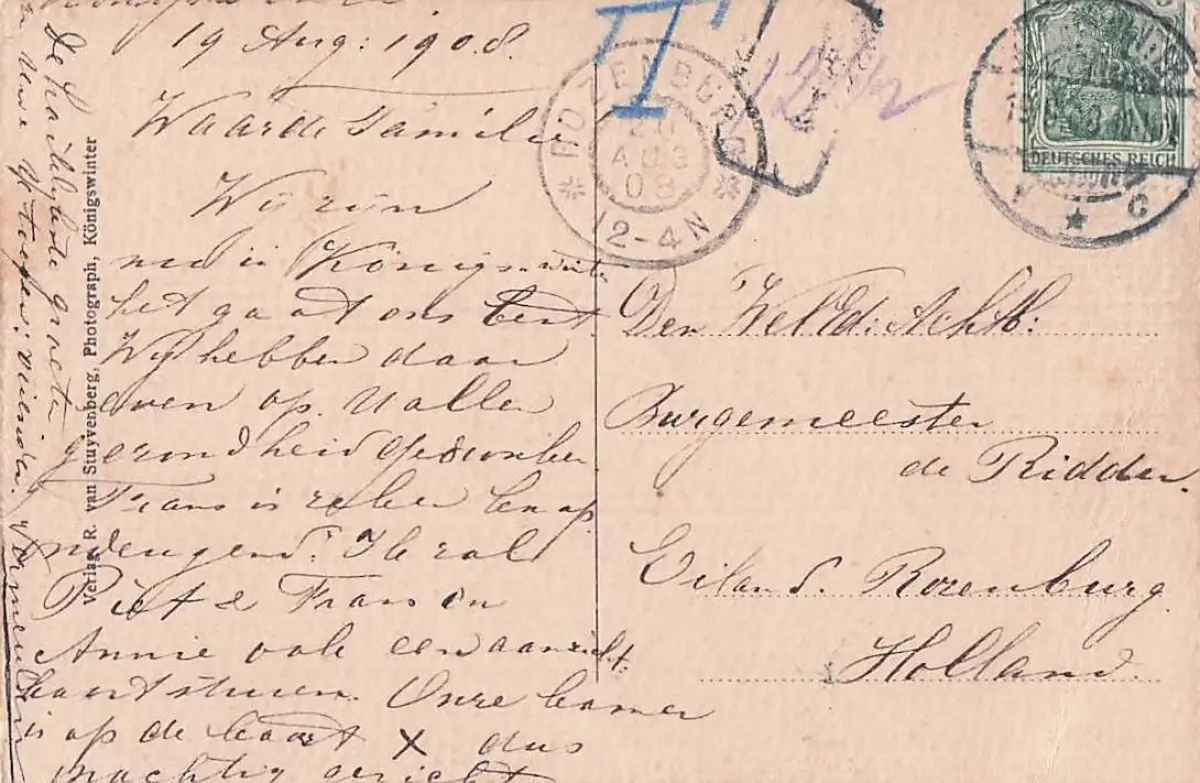 19 Aug: 1908.
Waarde Familie
Wij zijn
nu in Königswinter
het gaat ons best
Wij hebben daar
even op U aller
gezondheid gedronken
Frans is zeker knap
ondeugend. Ik zal
Piet & Frans en
Annie ook een aanzicht
kaart sturen. Onze kamer
is op de kaart X dus
prachtig gezicht
De hartelijkste groeten
Verlag R. van Stuyvenberg, Photograph, Königswinter
II
12
ROZENBURG
20
AUG
08
12-4N
DEUTSCHES REICH
* C
Den WelEd: Achtb:
Burgemeester
de Ridder.
Eiland. Rozenburg
Holland.